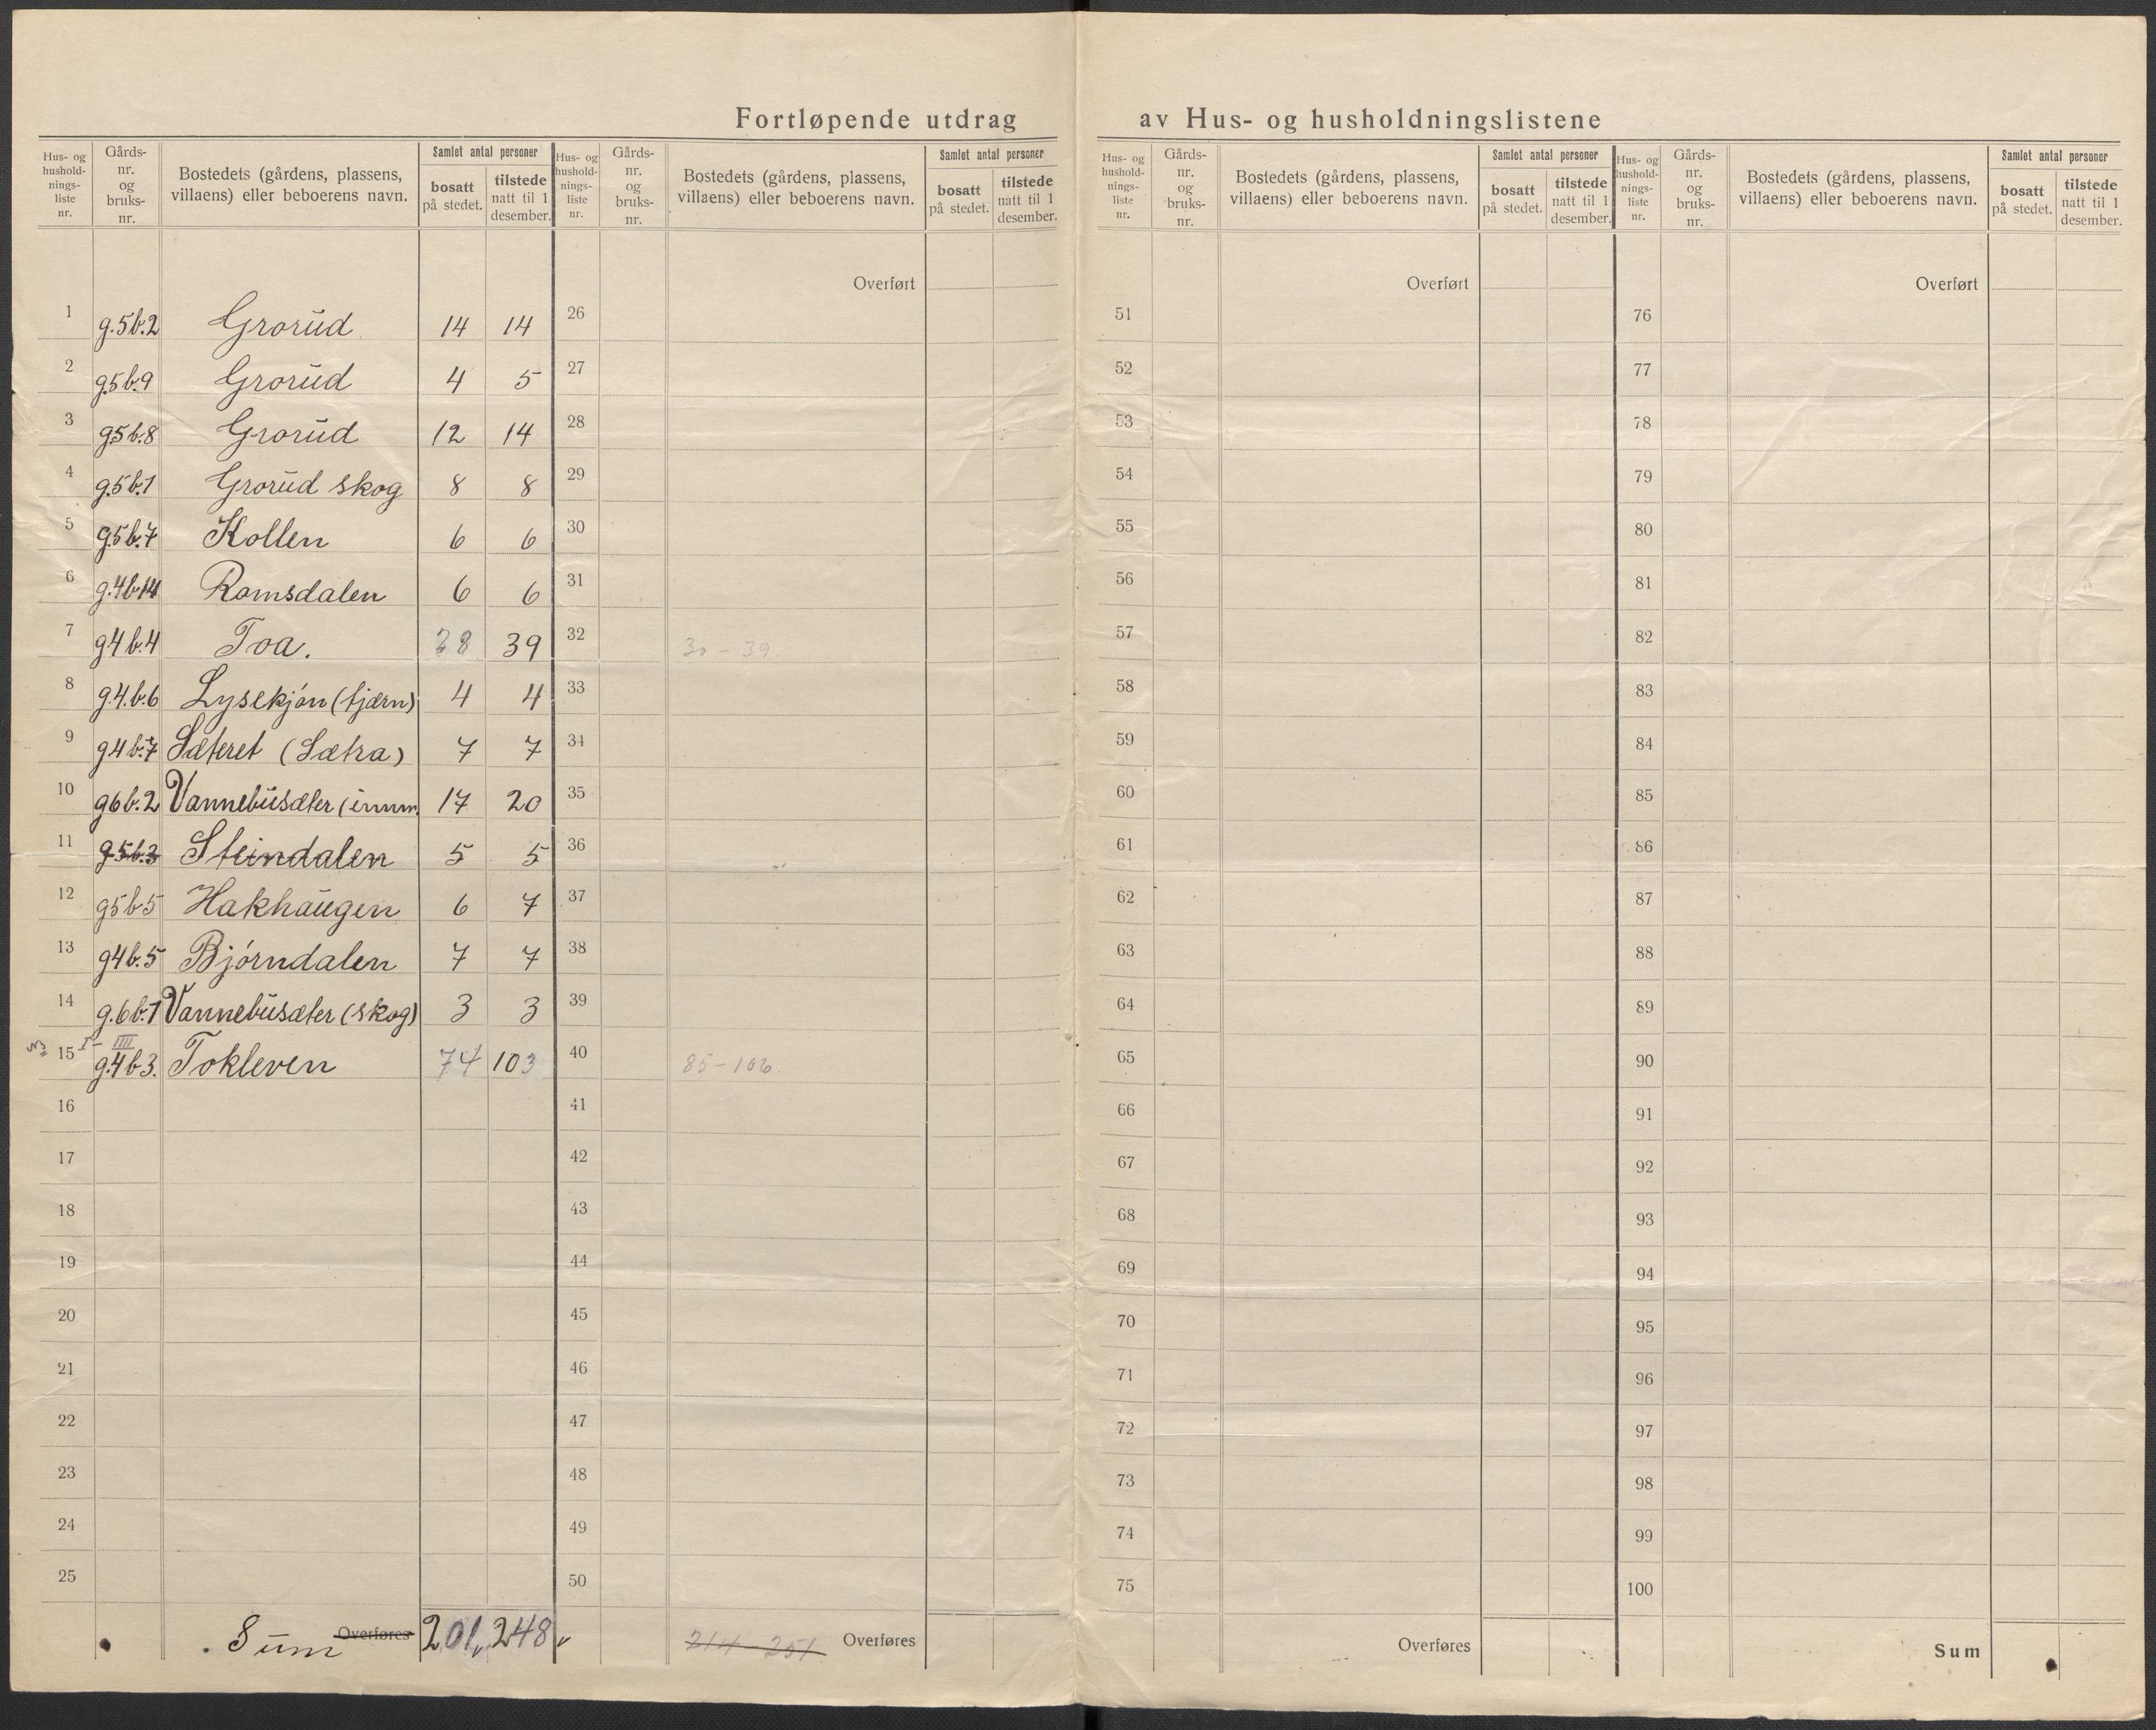 Fortløpende utdrag av Hus- og husholdningslistene
Hus- og hushold-nings-liste nr. Gårds-nr. og bruks-nr. Bostedets (gårdens, plassens, villaens) eller beboerens navn. Samlet antal personer bosatt på stedet. tilstede natt til 1 desember.
Hus- og hushold-nings-liste nr. Gårds-nr. og bruks-nr. Bostedets (gårdens, plassens, villaens) eller beboerens navn. Samlet antal personer bosatt på stedet. tilstede natt til 1 desember.
Hus- og hushold-nings-liste nr. Gårds-nr. og bruks-nr. Bostedets (gårdens, plassens, villaens) eller beboerens navn. Samlet antal personer bosatt på stedet. tilstede natt til 1 desember.
Hus- og hushold-nings-liste nr. Gårds-nr. og bruks-nr. Bostedets (gårdens, plassens, villaens) eller beboerens navn. Samlet antal personer bosatt på stedet. tilstede natt til 1 desember.
1 g.5b.2 Grorud 14 14
2 g5b.9 Grorud 4 5
3 g5b.8 Grorud 12 14
4 g.5b.1 Grorud skog 8 8
5 g.5b.7 Kollen 6 6
6 g.4b14 Romsdalen 6 6
7 g4b.4 Toa. 28 39
8 g.4.b.6 Lysekjøn (tjærn) 4 4
9 g4b.7 Sæteret (Sætra) 7 7
10 g6b.2 Vannebusæter (innm. 17 20
11 g.5b.3 Steindalen 5 5
12 g5b5 Hakhaugen 6 7
13 g4b.5 Bjørndalen 7 7
14 g.6b.1 Vannebusæter (skog) 3 3
15 I - IIII g.4b3. Tokleven 74 103
16
17
18
19
20
21
22
23
24
25
Sum Overføres 201 248
Overført
26
27
28
29
30
31
32 30 - 39
33
34
35
36
37
38
39
40 85 - 106
41
42
43
44
45
46
47
48
49
50
214 - 251 Overføres
Overført
51
52
53
54
55
56
57
58
59
60
61
62
63
64
65
66
67
68
69
70
71
72
73
74
75
Overføres
Overført
76
77
78
79
80
81
82
83
84
85
86
87
88
89
90
91
92
93
94
95
96
97
98
99
100
Sum